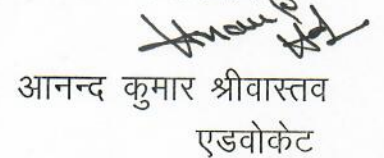 आनन्द कुमार श्रीवास्तव
एडवोकेट